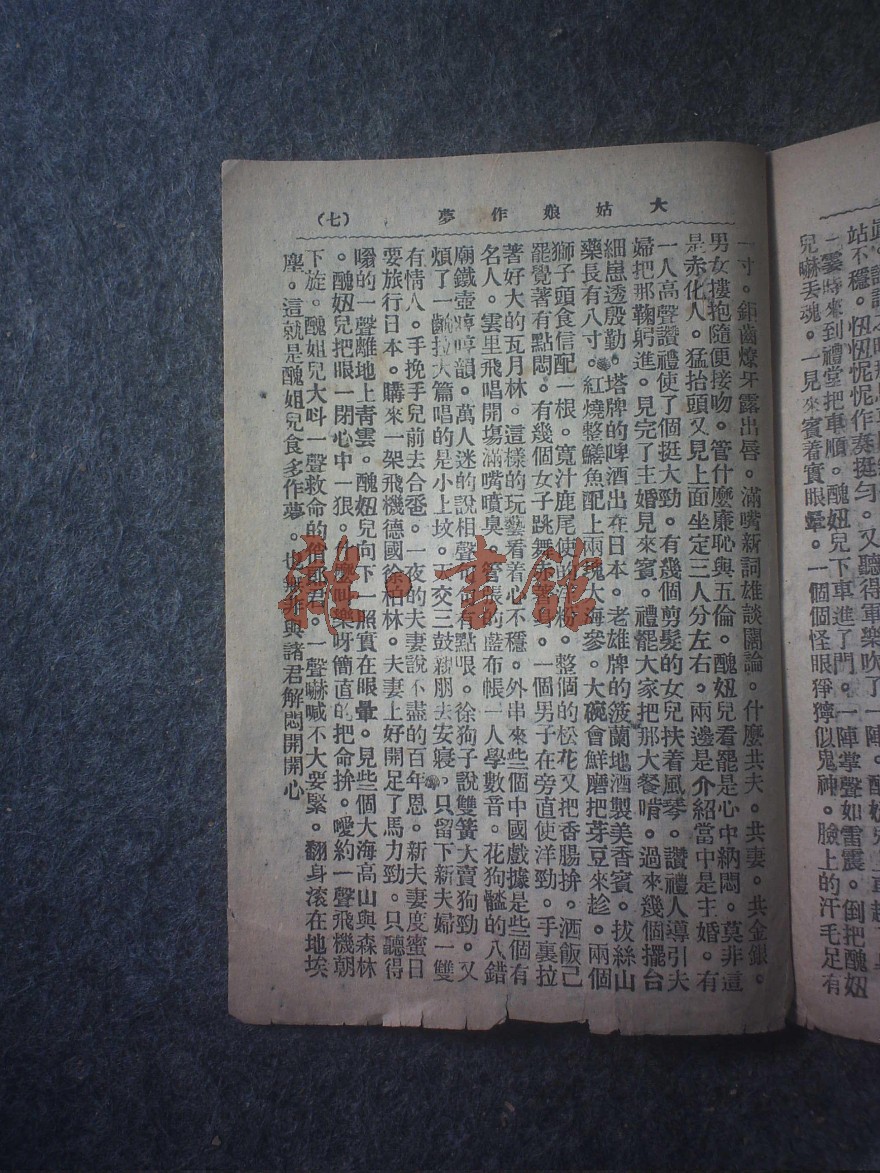 眞。
站不穩。忸忸怩怩作奏挺勻。又聽得軍樂吹了一陣。醜妞兒
一霎時來到禮堂把車順。醜妞兒下車進了門。一陣掌聲如雷震。倒把醜妞
兒嚇丟魂。一見來賓着實眼暈。一個個怪眼猙獰似鬼神。臉上的汗毛足有
大姑娘作夢
(七)
一寸。鉅齒燎牙露出唇。滿嘴新詞雄談闊論。什麼共夫。共妻。共金銀。
男女摟抱隨便接吻。管什麼廉恥與五倫。醜妞兒看罷是心中納悶。莫非這
是赤化人。猛抬頭又見上面坐定三人分左右。兩邊是介紹當中是主婚。有
一人高聲讚禮使了個挺大勁。有幾個剪髮的女兒扶着風琴。讚禮人導引夫
婦把那鞠躬進。見完了主婚見來賓。禮罷大家把那大餐啃。過來幾個擺台
細崽透殷勤。塔牌的啤酒出在日本。老雄牌的菠蘭地酒製美香賓。拔絲山
藥長有八寸。紅燒整鱔魚配上兩塊大海參。大碗會鮮磨把芽豆來趁。兩個
獅子頭食信配一根。寬汁鹿尾使的粉。整個的松花又把香腸拚。酒飯已
罷覺著有點悶。有幾個女子跳舞。一個男子在旁直使洋勁。手裏拉
著好大的瓦月林。這樣的玩藝看着心不穩。外串來些個中國戲據是些個有
名人。雲里飛唱開塲滿嘴噴臭。管張的藍布帳一人學數音。花狗髓的八錯
廟鐵壺哼哼韻。萬人迷的說相聲有點哏。徐狗子說雙簧大賣狗勁。又
煩了一齣拉大篇唱的是小上坟。正交三鼓親朋去安寢。只留下新夫婦一雙
有情人。手挽手兒前去合卺。一夜的夫妻說不盡的百年恩。新夫妻度蜜日
要旅行日本。購來一架飛機德國徐柏林。夫妻上好開足了馬力勁。只聽得
嗡的一聲離地上靑雲。醜妞兒向下一照實在眼暈。見些個大海高山與森林
。醜妞兒把眼一閉心中一狠。呀簡直的把命拚。噯約一聲飛機朝
下旋。醜姐兒大呌一聲救命的俏郎君。一聲嚇喊不大要緊。翻身滚在地埃
塵。這就是醜姐兒食多作夢。也無非與諸君解悶開開心
雜·書館